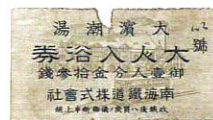 い號
大濱潮湯
大人入浴券
御壹人分金拾參錢
南海鐵道株式會社